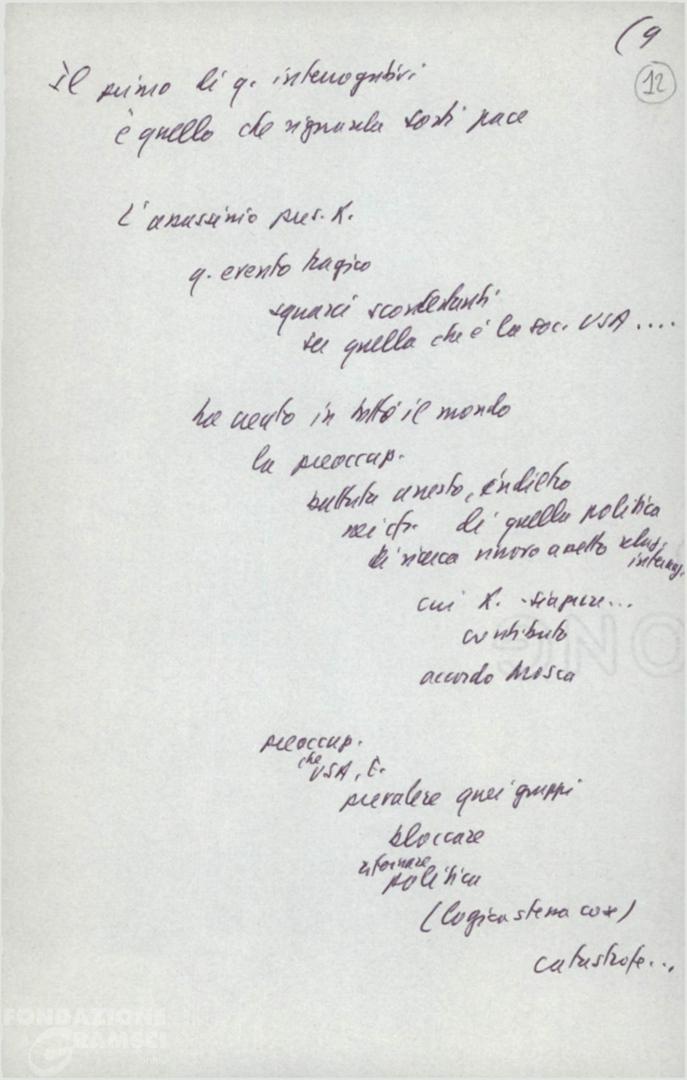 (9
12
Il primo di q. interrogativi
è quello che riguarda sorti pace
L'assassinio pres. K.
q. evento tragico
squarci sconcertanti
su quella che è la soc. USA ....
ha creato in tutto il mondo
la preoccup.
battuta arresto, indietro
nei cfr. di quella politica
di ricerca nuovo assetto relaz. internaz.
cui K. - sia pure...
contributo
accordo Mosca
preoccup.
che
USA, E.
prevalere quei gruppi
bloccare
rifornare
politica
(logica stessa cose)
catastrofe...
FONDAZIONE
GRAMSCI